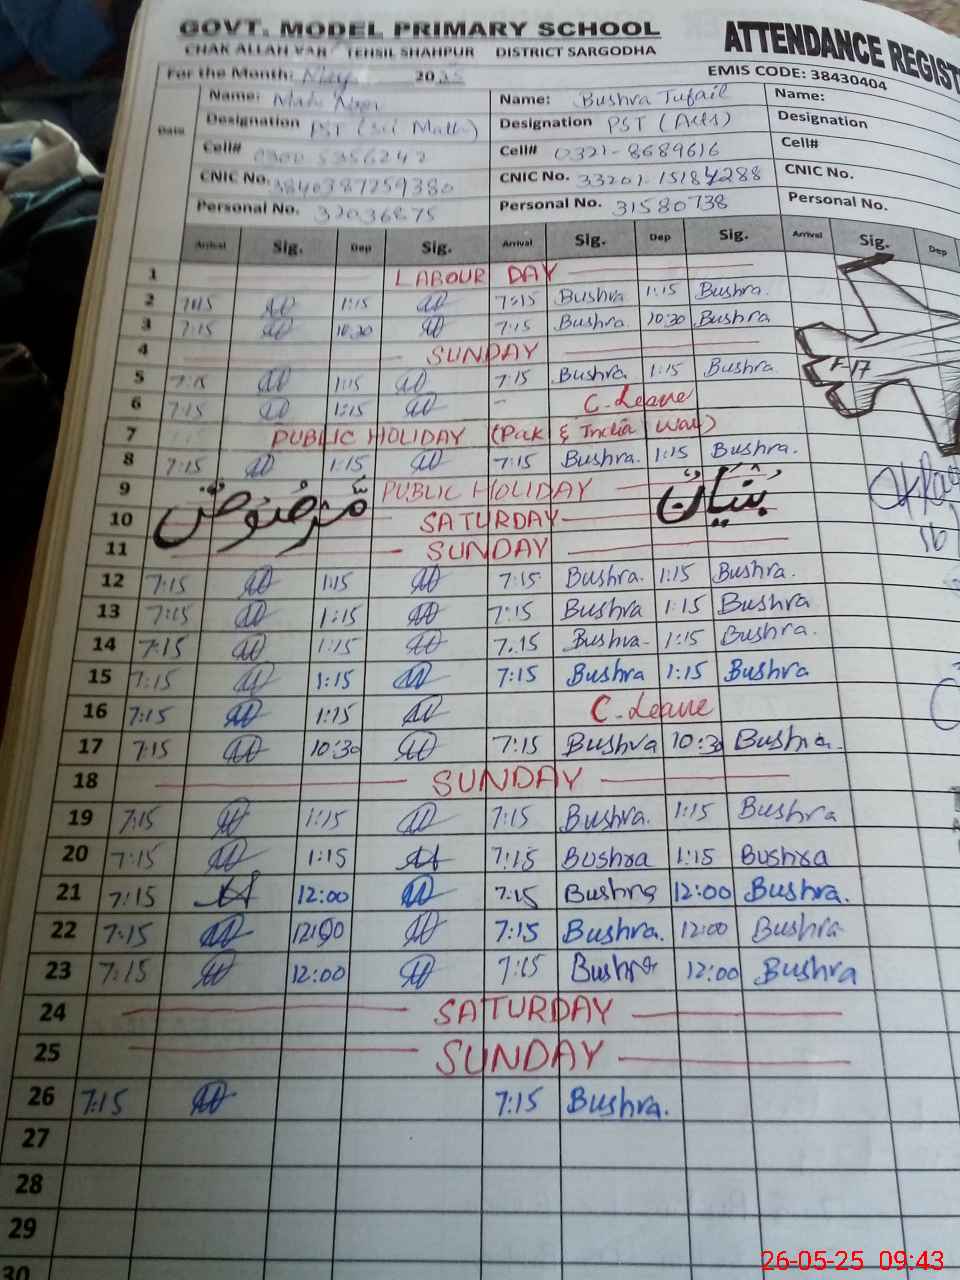 GOVT. MODEL PRIMARY SCHOOL
CHAK ALLAH YAR TEHSIL SHAHPUR DISTRICT SARGODHA
ATTENDANCE REGIST
For the Month: May 2025 EMIS CODE: 38430404
Date Name: Name: Bushra Tufail Name:
Designation PST (Sci Math) Designation PST (Arts) Designation
Cell# Cell# 0321-8689616 Cell#
CNIC No. 3840387259380 CNIC No. 33201-15184288 CNIC No.
Personal No. 32036875 Personal No. 31580738 Personal No.
Arrival Sig. Dep Sig. Arrival Sig. Dep Sig. Arrival Sig. Dep
1 LABOUR DAY
2 7:15 1:15 7:15 Bushra. 1:15 Bushra.
3 7:15 10:30 7:15 Bushra. 10:30 Bushra
4 SUNDAY
5 7:15 1:15 7:15 Bushra. 1:15 Bushra. F-17
6 7:15 1:15 - C. Leave
7 PUBLIC HOLIDAY (Pak & India War)
8 7:15 1:15 7:15 Bushra. 1:15 Bushra.
9 PUBLIC HOLIDAY
بُنْيَانٌ مَّرْصُوصٌ
10 SATURDAY
11 SUNDAY
12 7:15 1:15 7:15 Bushra. 1:15 Bushra.
13 7:15 1:15 7:15 Bushra 1:15 Bushra
14 7:15 1:15 7:15 Bushra- 1:15 Bushra.
15 7:15 1:15 7:15 Bushra 1:15 Bushra
16 7:15 1:15 C. Leave
17 7:15 10:30 7:15 Bushra 10:30 Bushra.
18 SUNDAY
19 7:15 1:15 7:15 Bushra. 1:15 Bushra
20 7:15 1:15 7:15 Bushra 1:15 Bushra
21 7:15 12:00 7:15 Bushra 12:00 Bushra.
22 7:15 12:00 7:15 Bushra. 12:00 Bushra
23 7:15 12:00 7:15 Bushra 12:00 Bushra
24 SATURDAY
25 SUNDAY
26 7:15 7:15 Bushra.
27
28
29
30
26-05-25 09:43